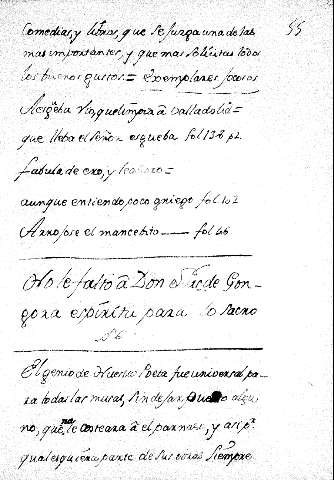 55
Comedias, y libros, que se juzga una de las
mas importantes, y que mas solicitas todos
los buenos gustos.= Exemplares jocosos
que lleba el señor esgueba fol 138 p2.
fabula de ero, y leandro=
aunque entiendo poco griego fol 102
Arrojose el mancebito —— fol 46
No le faltò â Don Luis de Gon-
gora espiritu para lo sacro
El genio de Nuestro Poeta fue universal pa-
ra todas las musas, sin dejar puesto algu-
no, que no le costeara â el parnaso, y asi pr.
qualesquiera parte de sus obras siempre